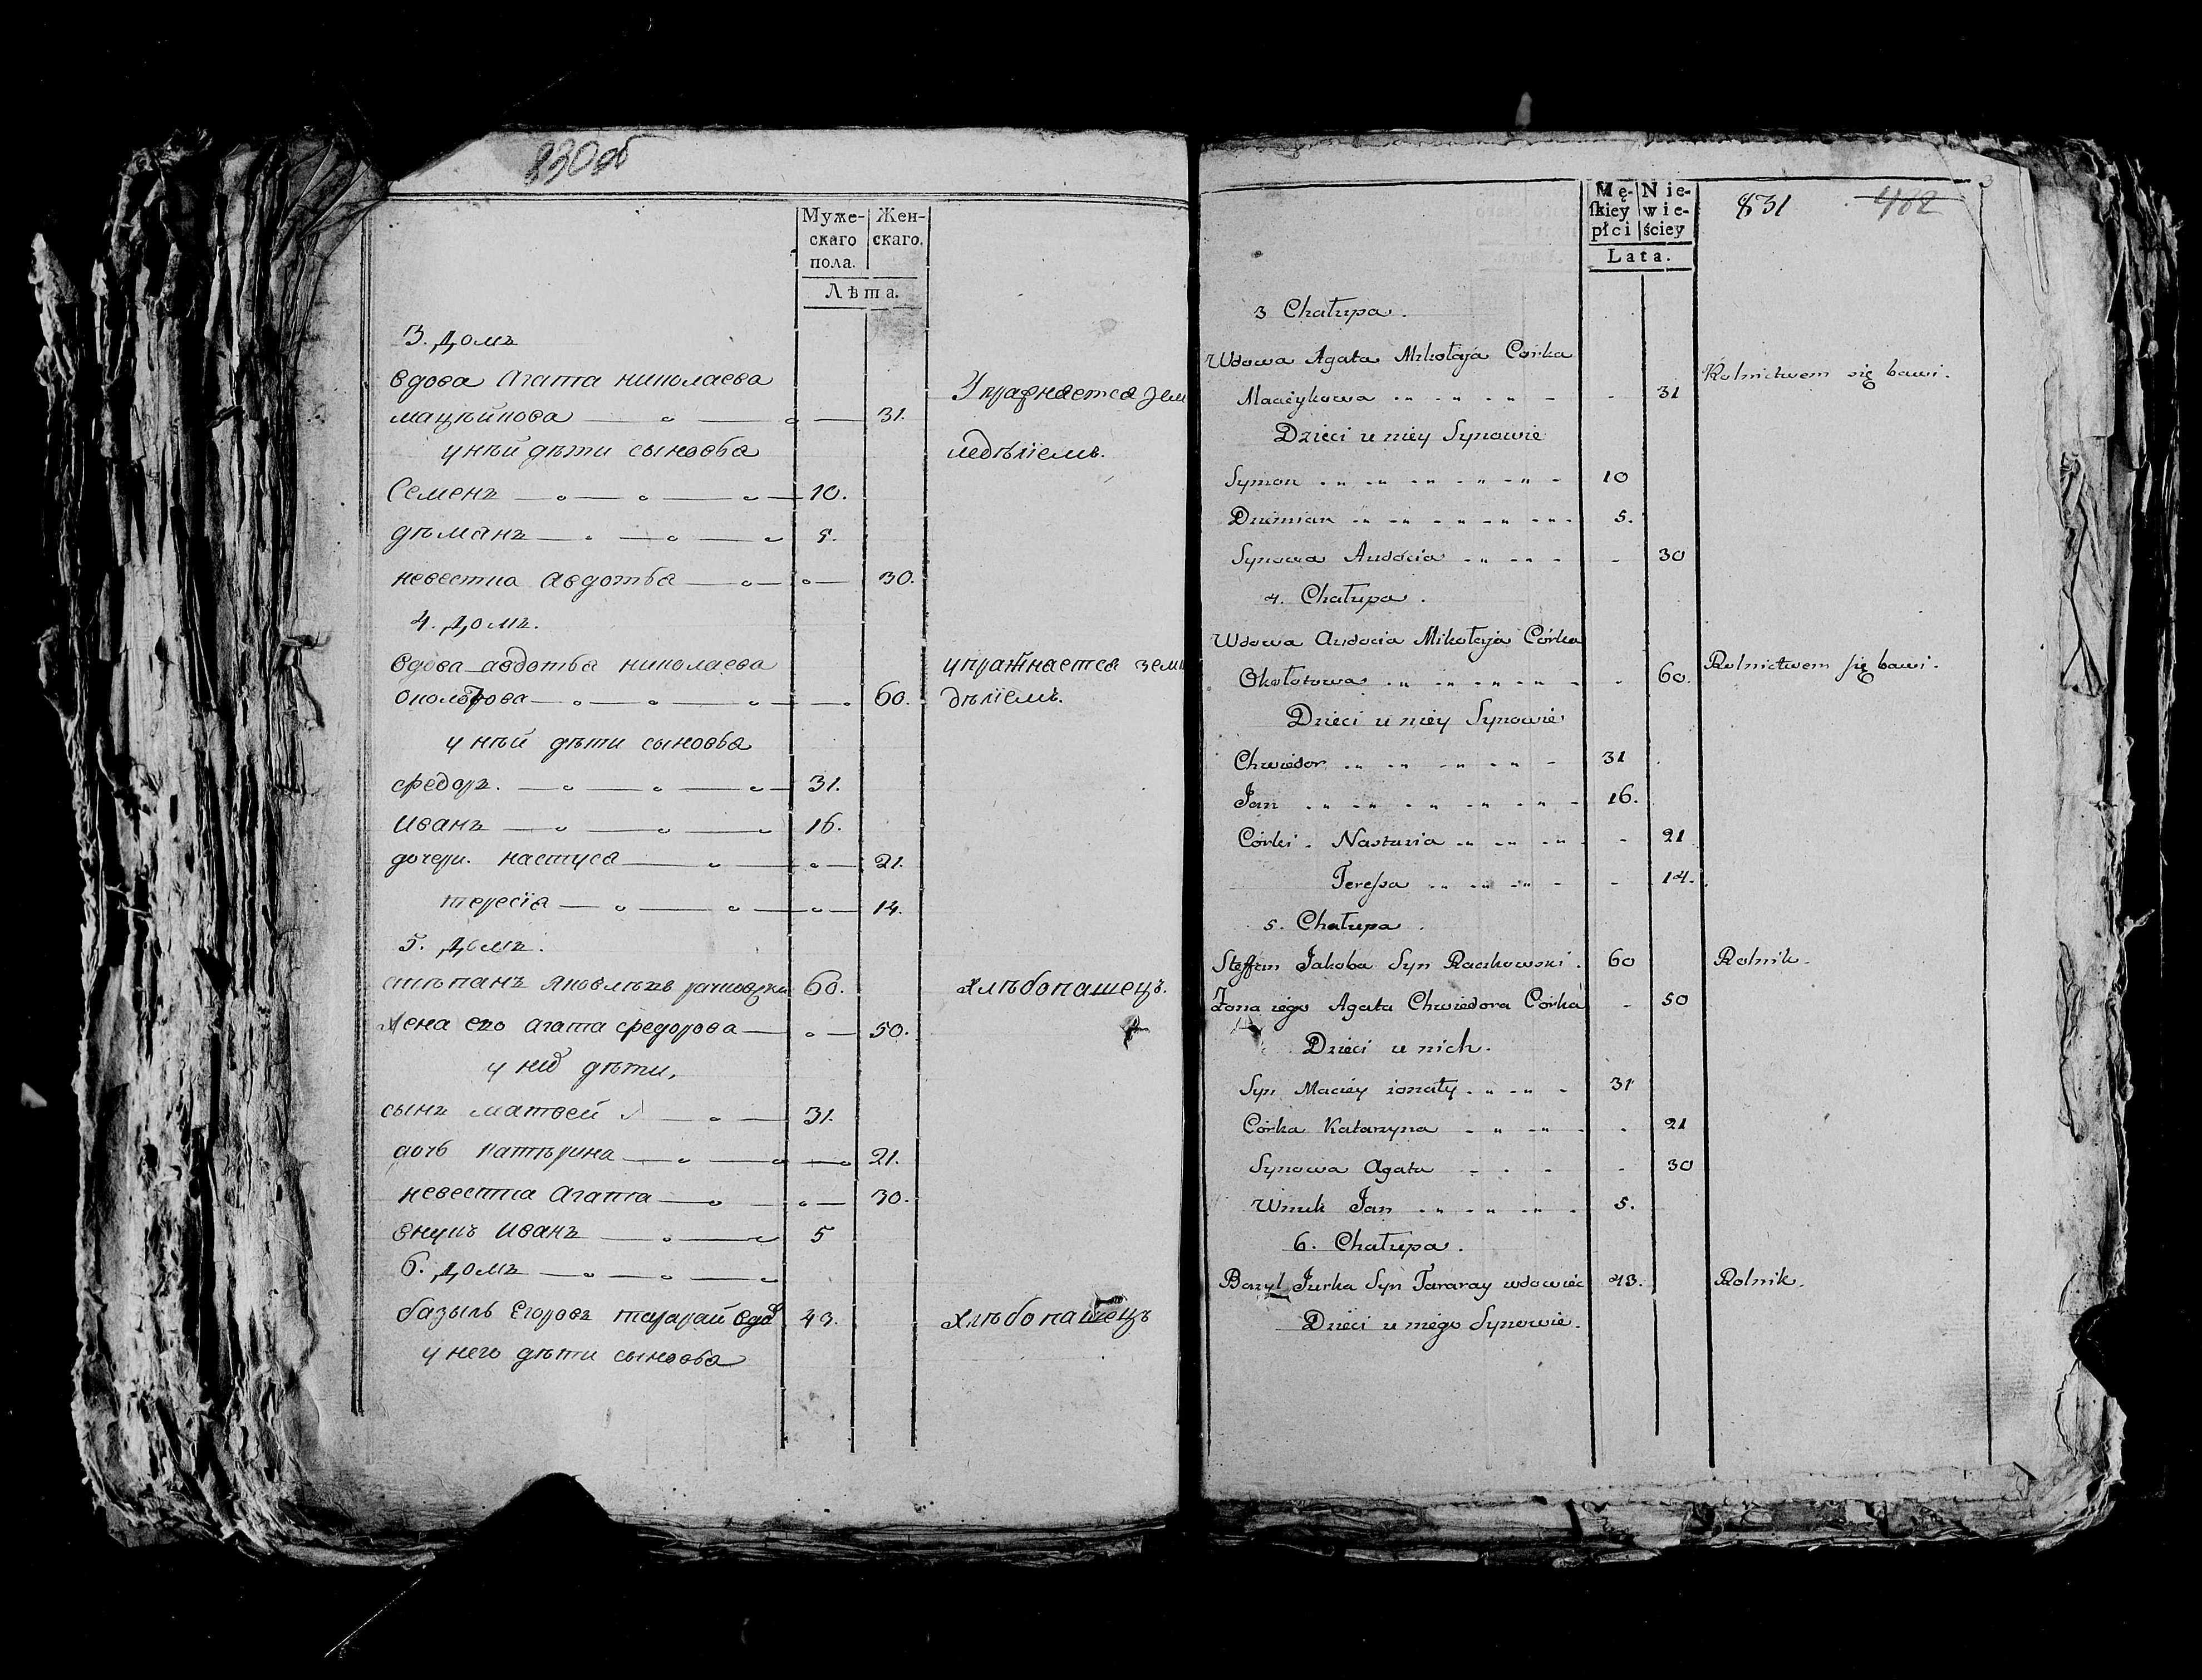 830об
Муже-
скаго
пола.
Жен-
скаго.
Лѣта.
3. Домъ
вдова Агата николаева
Упражняется зем
мацѣйкова 31.
у нѣй дѣти сыновья
ледѣлiемъ.
Семенъ 10.
дѣманъ 5.
невестка Авдотья 30.
4. Домъ.
вдова авдотья николаева
упражняется земл
околотова 60.
дѣлiемъ.
у нѣй дѣти сыновья
федоръ. 31.
Иванъ 16.
дочери. настуся 21.
тересiя 14.
5. Домъ.
стѣпанъ яковлѣвъ рачковски 60. хлѣбопашецъ.
жена его агата федорова 50.
у них дѣти,
сынъ матвей 31.
дочь катѣрина 21.
невестка Агата 30.
внукъ Иванъ 5
6. Домъ
базыль Егоровъ тарарай вдов 43. хлѣбопашецъ
у него дѣти сыновья
Mę-
skiey
płci
Nie-
wie-
ściey
Lata.
831 482
3
3 Chałupa.
Wdowa Agata Mikołaja Córka
Rolnictwem się bawi.
Macieykowa 31
Dzieci u niey Synowie
Symon 10
Dziemian 5.
Synowa Audocia 30
4. Chałupa.
Wdowa Audocia Mikołaja Córka
Rolnictwem się bawi.
Okołotowa 60.
Dzieci u niey Synowie
Chwiedor 31
Jan 16.
Córki. Nastazia 21
Teressa 14.
5. Chałupa.
Steffan Jakoba Syn Raczkowski. 60 Rolnik.
Żona iego Agata Chwiedora Córka 50
Dzieci u nich.
Syn Maciey żonaty 31
Córka Katarzyna 21
Synowa Agata 30
Wnuk Jan 5.
6. Chałupa.
Bazyl Jurka Syn Tararay wdowiec 43. Rolnik.
Dzieci u niego Synowie.